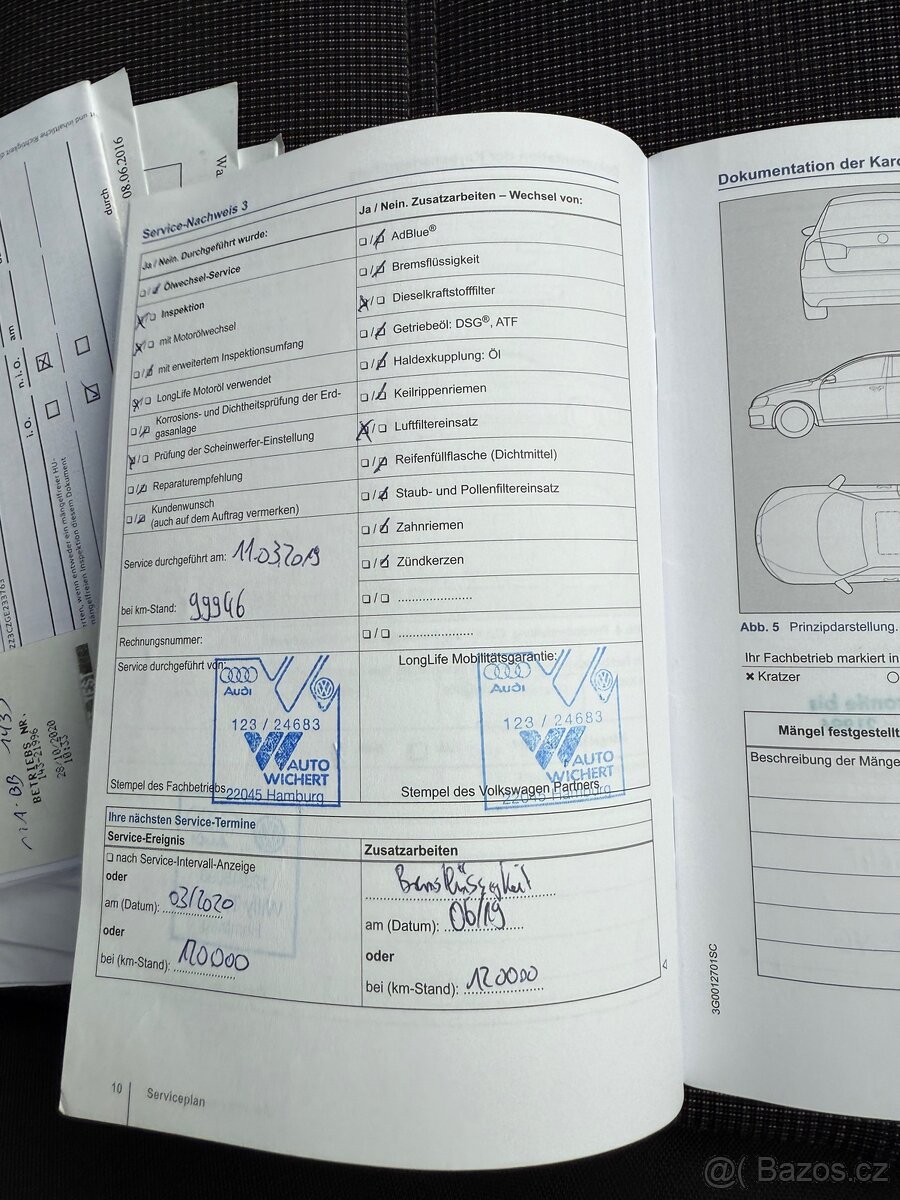 Service-Nachweis 3
Ja / Nein. Durchgeführt wurde:
Ölwechsel-Service
Inspektion
mit Motorölwechsel
mit erweitertem Inspektionsumfang
LongLife Motoröl verwendet
Korrosions- und Dichtheitsprüfung der Erd-
gasanlage
Prüfung der Scheinwerfer-Einstellung
Reparaturempfehlung
Kundenwunsch
(auch auf dem Auftrag vermerken)
Service durchgeführt am: 11.03.2019
bei km-Stand: 99946
Rechnungsnummer:
Service durchgeführt von:
Audi
123 / 24683
AUTO
WICHERT
22045 Hamburg
Stempel des Fachbetriebs
Ja / Nein. Zusatzarbeiten – Wechsel von:
AdBlue®
Bremsflüssigkeit
Dieselkraftstofffilter
Getriebeöl: DSG®, ATF
Haldexkupplung: Öl
Keilrippenriemen
Luftfiltereinsatz
Reifenfüllflasche (Dichtmittel)
Staub- und Pollenfiltereinsatz
Zahnriemen
Zündkerzen
LongLife Mobilitätsgarantie:
Audi
123 / 24683
AUTO
WICHERT
22045 Hamburg
Stempel des Volkswagen Partners
Ihre nächsten Service-Termine
Service-Ereignis
nach Service-Intervall-Anzeige
oder
am (Datum): 03/2020
oder
bei (km-Stand): 120000
Zusatzarbeiten
Bremsflüssigkeit
am (Datum): 06/19
oder
bei (km-Stand): 120000
10 Serviceplan
Dokumentation der Karo
Abb. 5 Prinzipdarstellung.
Ihr Fachbetrieb markiert in
Kratzer
Mängel festgestellt
Beschreibung der Mänge
3G0012701SC
durch
08.06.2016
Wa
am
n.i.O.
i.O.
BETRIEBS NR.
28/10/2020
@( Bazos.cz